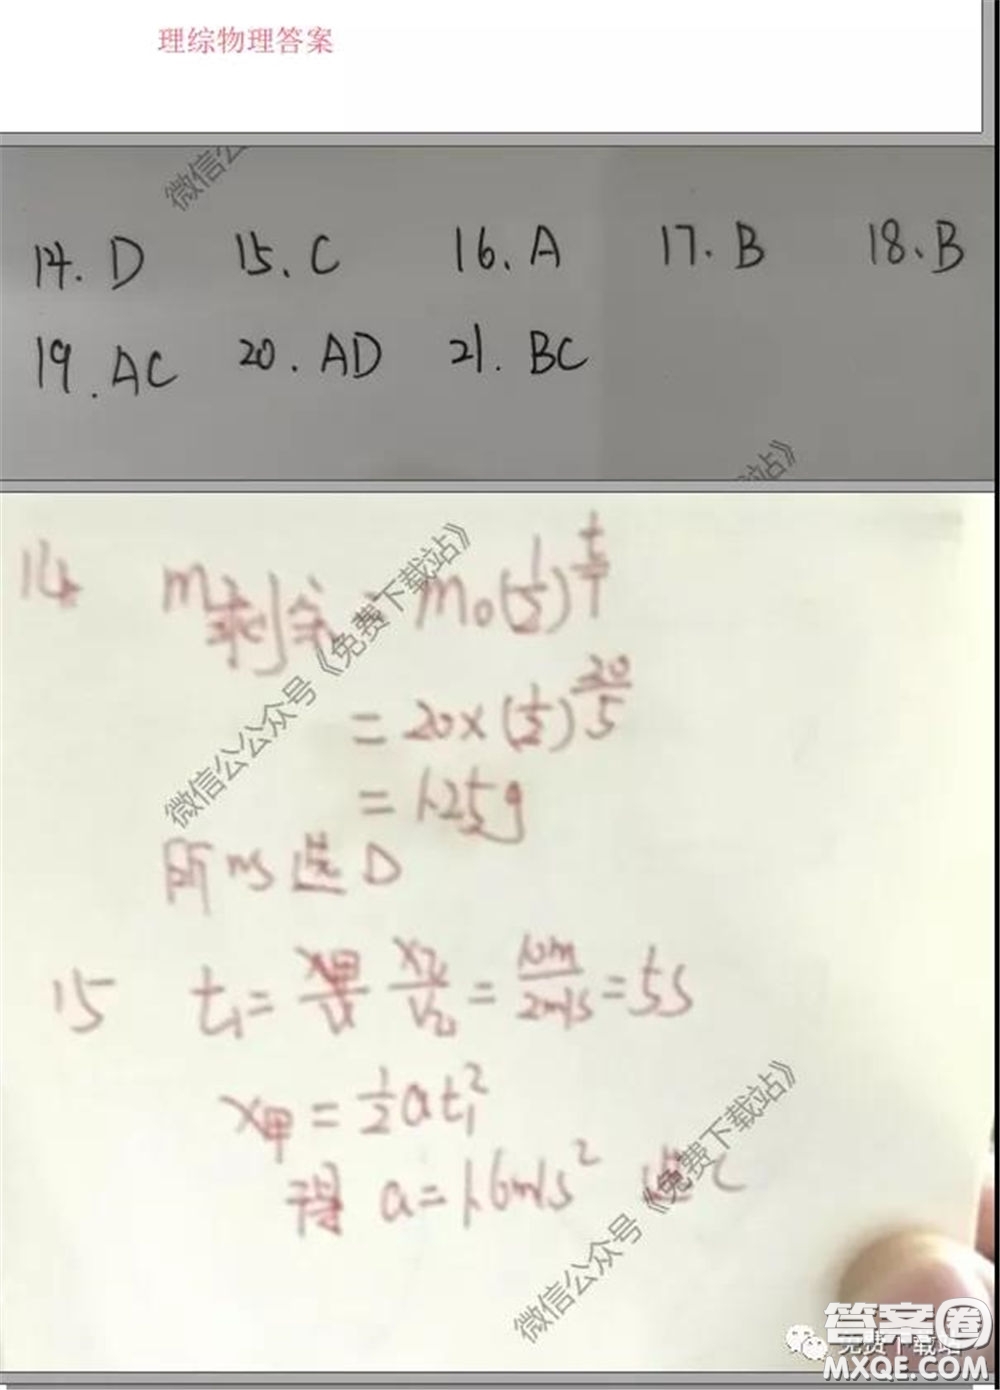 理综物理答案
微信公众
14. D 15. C 16. A 17. B 18. B
19. AC 20. AD 21. BC
站》
14 m剩余 = m0(1/2)^(t/T)
= 20×(1/2)^(20/5)
= 1.25g
所以选D
微信公公众号《免费下载站》
15 t1= x乙/v乙 = 10m/2m/s = 5s
x甲 = 1/2 a t1^2
得 a=1.6m/s^2 选C
微信公众号《免费下载站》
答案圈
免费下载站
MXQE.COM